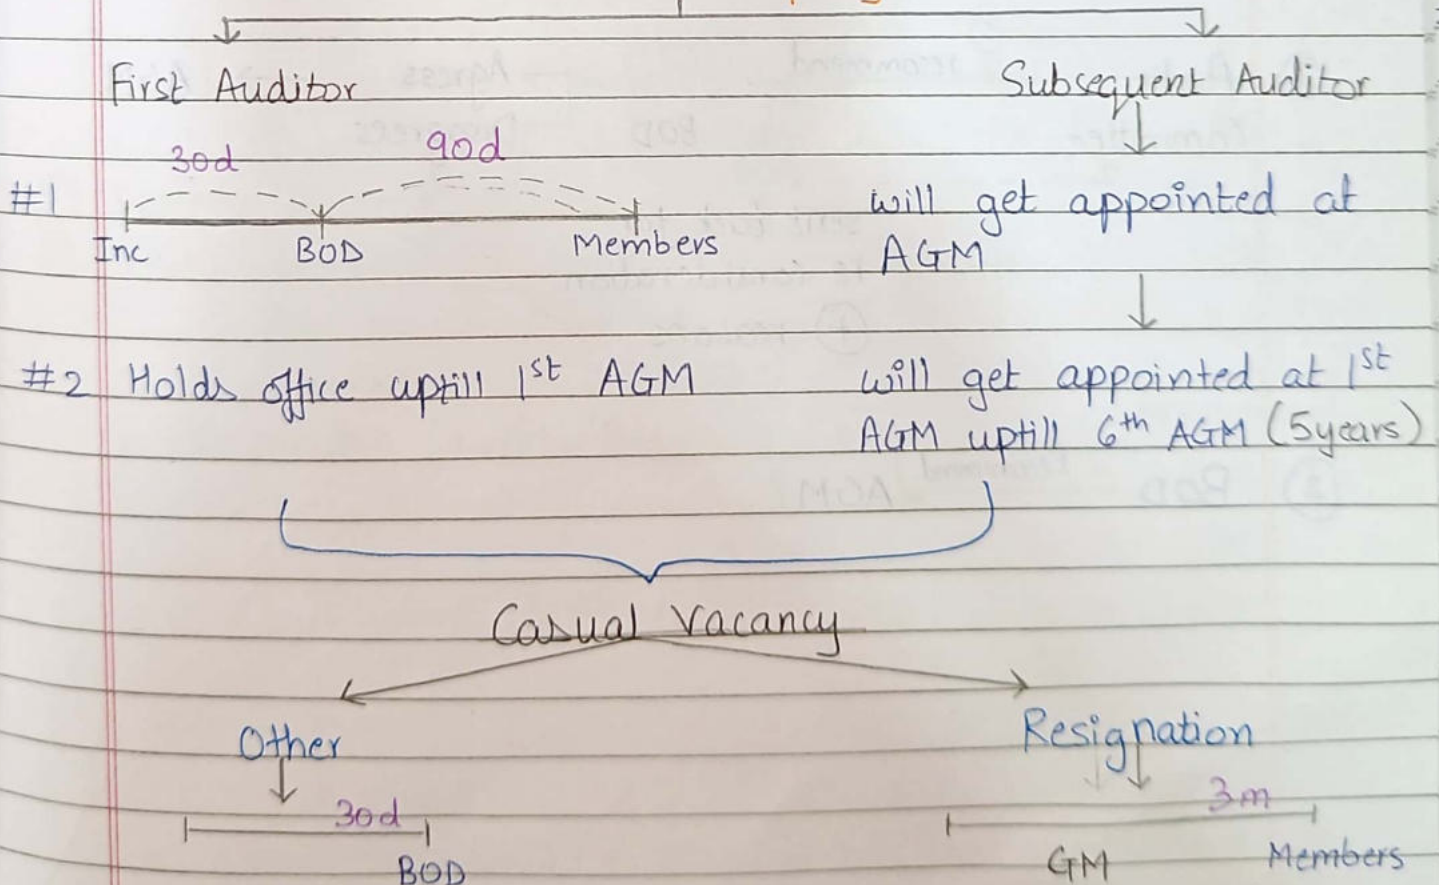 First Auditor
Subsequent Auditor
30d 90d
#1
Inc BOD Members
will get appointed at
AGM
#2 Holds office uptill 1st AGM
will get appointed at 1st
AGM uptill 6th AGM (5years)
Casual Vacancy
Other
Resignation
30d
BOD
3m
GM Members